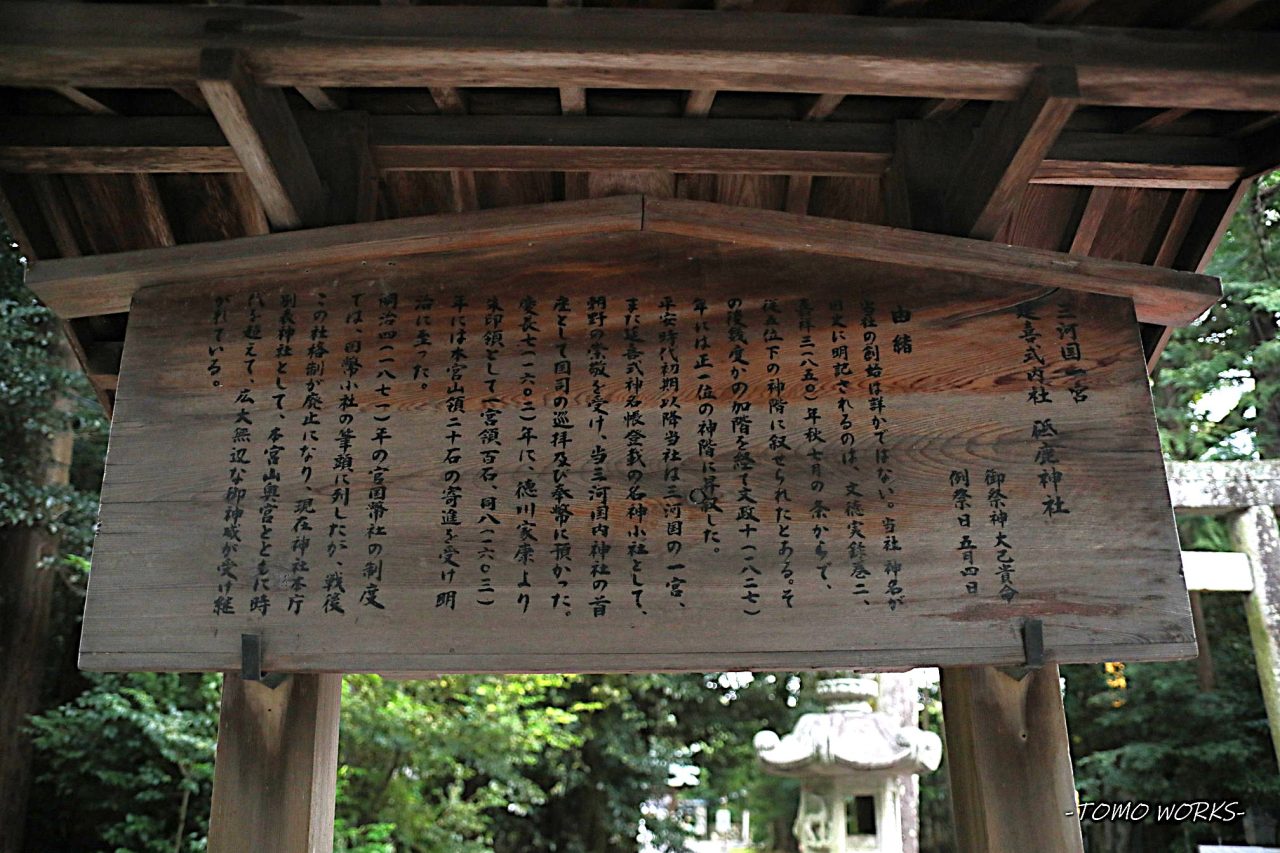 三河国一宮
延喜式内社 砥鹿神社
御祭神 大己貴命
例祭日 五月四日
由緒
当社の創始は詳かではない。当社神名が
国史に明記されるのは、文徳実録巻二、
嘉祥三(八五〇)年秋七月の条からで、
従五位下の神階に叙せられたとある。そ
の後幾度かの加階を経て文政十(一八二七)
年には正一位の神階に昇叙した。
平安時代初期以降当社は三河国の一宮、
また延喜式神名帳登載の名神小社として、
朝野の崇敬を受け、当三河国内神社の首
座として国司の巡拝及び奉幣に預かった。
慶長七(一六〇二)年に、徳川家康より
朱印領として一宮領百石、同八(一六〇三)
年には本宮山領二十石の寄進を受け明
治に至った。
明治四(一八七一)年の官国幣社の制度
では、国幣小社の筆頭に列したが、戦後
この社格制が廃止になり、現在神社本庁
別表神社として、本宮山奥宮とともに時
代を超えて、広大無辺な御神威が受け継
がれている。
-TOMO WORKS-